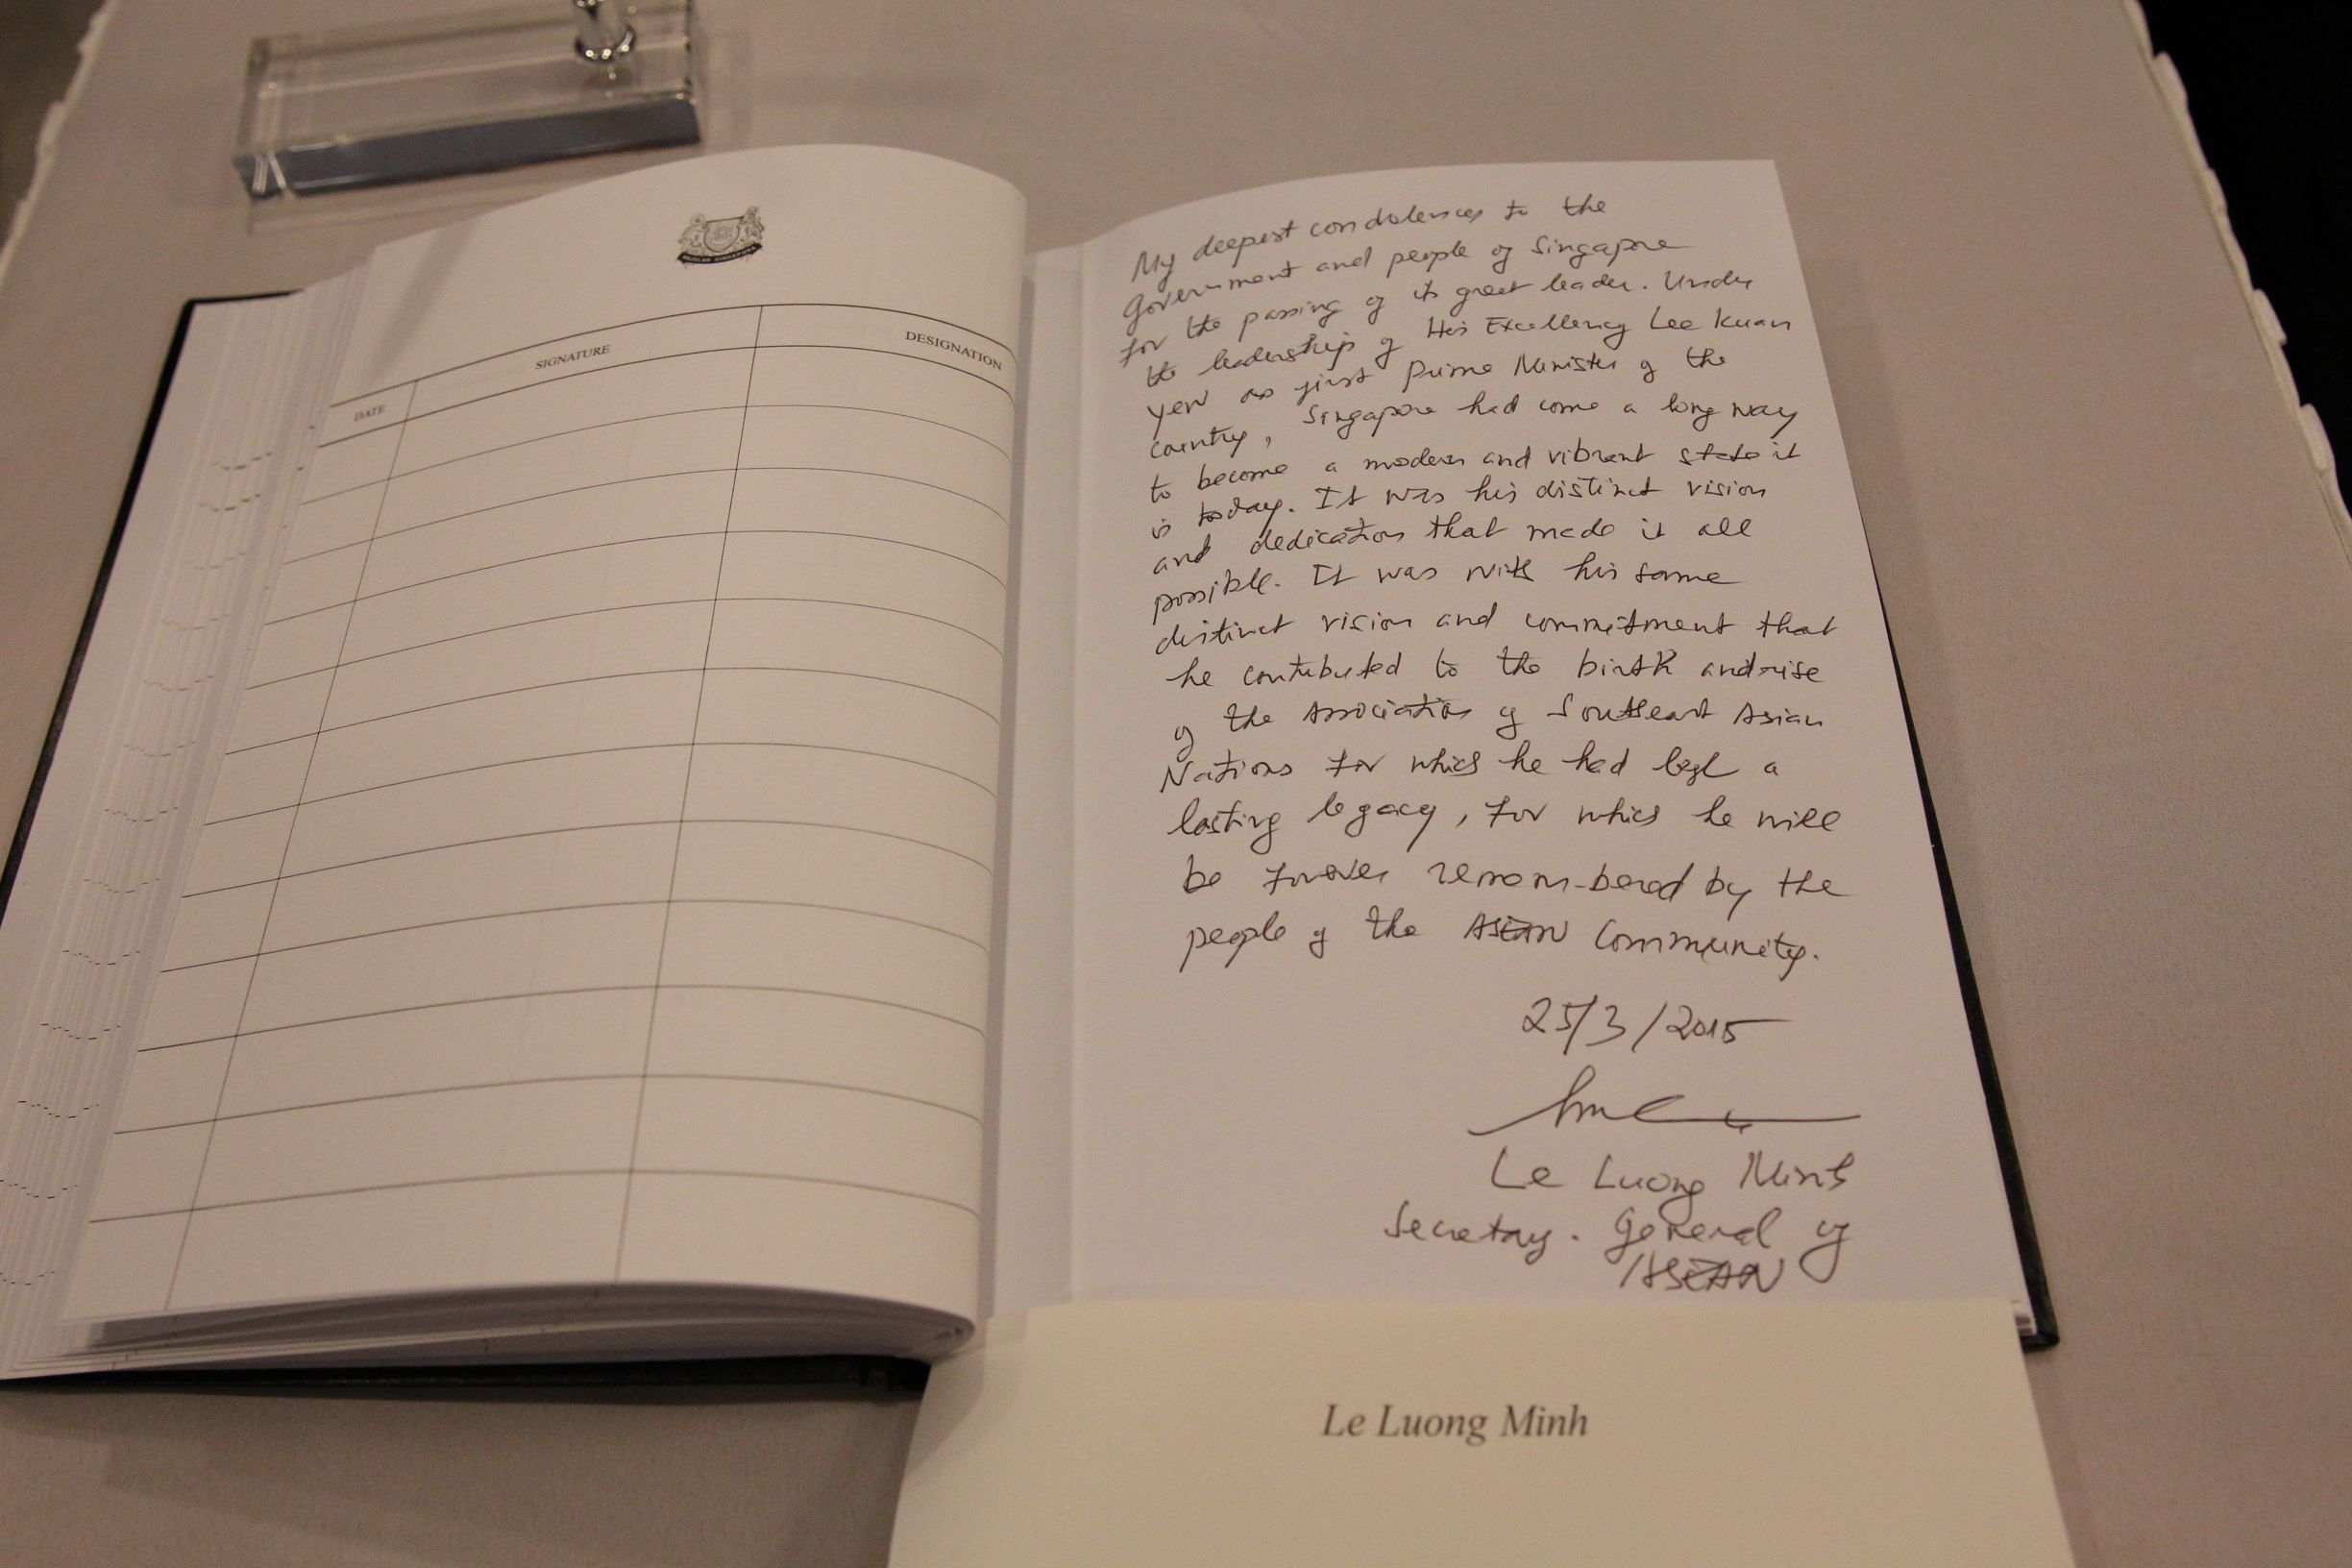 DATE
SIGNATURE
DESIGNATION
My deepest condolences to the
Government and people of Singapore
for the passing of its great leader. Under
the leadership of His Excellency Lee Kuan
Yew as first Prime Minister of the
country, Singapore had come a long way
to become a modern and vibrant state it
is today. It was his distinct vision
and dedication that made it all
possible. It was with his same
distinct vision and commitment that
he contributed to the birth and rise
of the Association of Southeast Asian
Nations for which he had left a
lasting legacy, for which he will
be forever remembered by the
people of the ASEAN Community.
25/3/2015
Le Luong Minh
Secretary-General of
ASEAN
Le Luong Minh